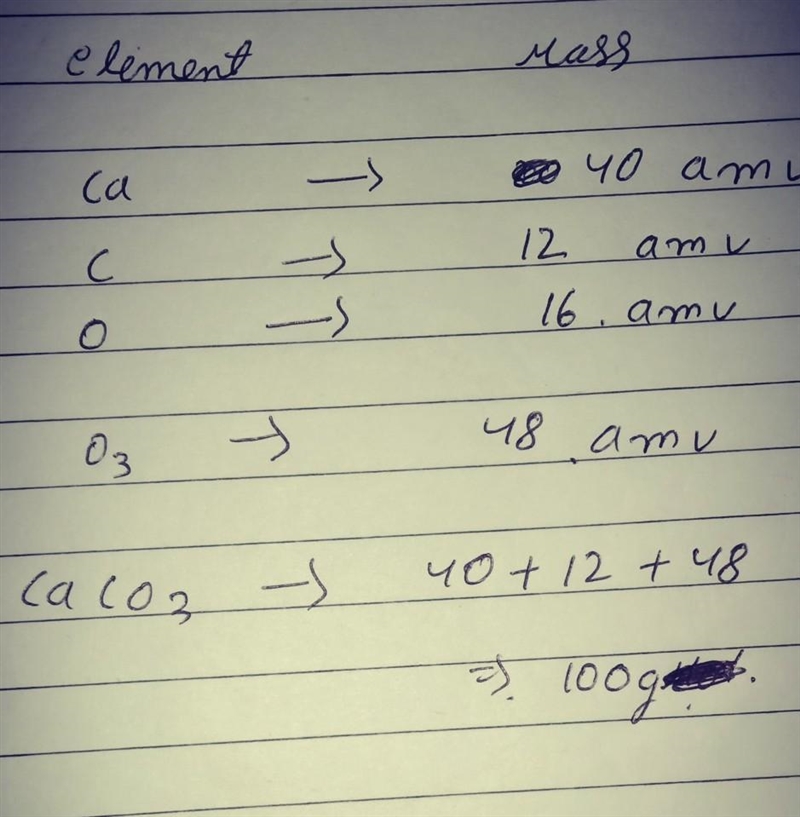 element Mass
Ca → 40 amu
C → 12 amu
O → 16 . amu
O₃ → 48 . amu
CaCO₃ → 40 + 12 + 48
⇒ 100g .